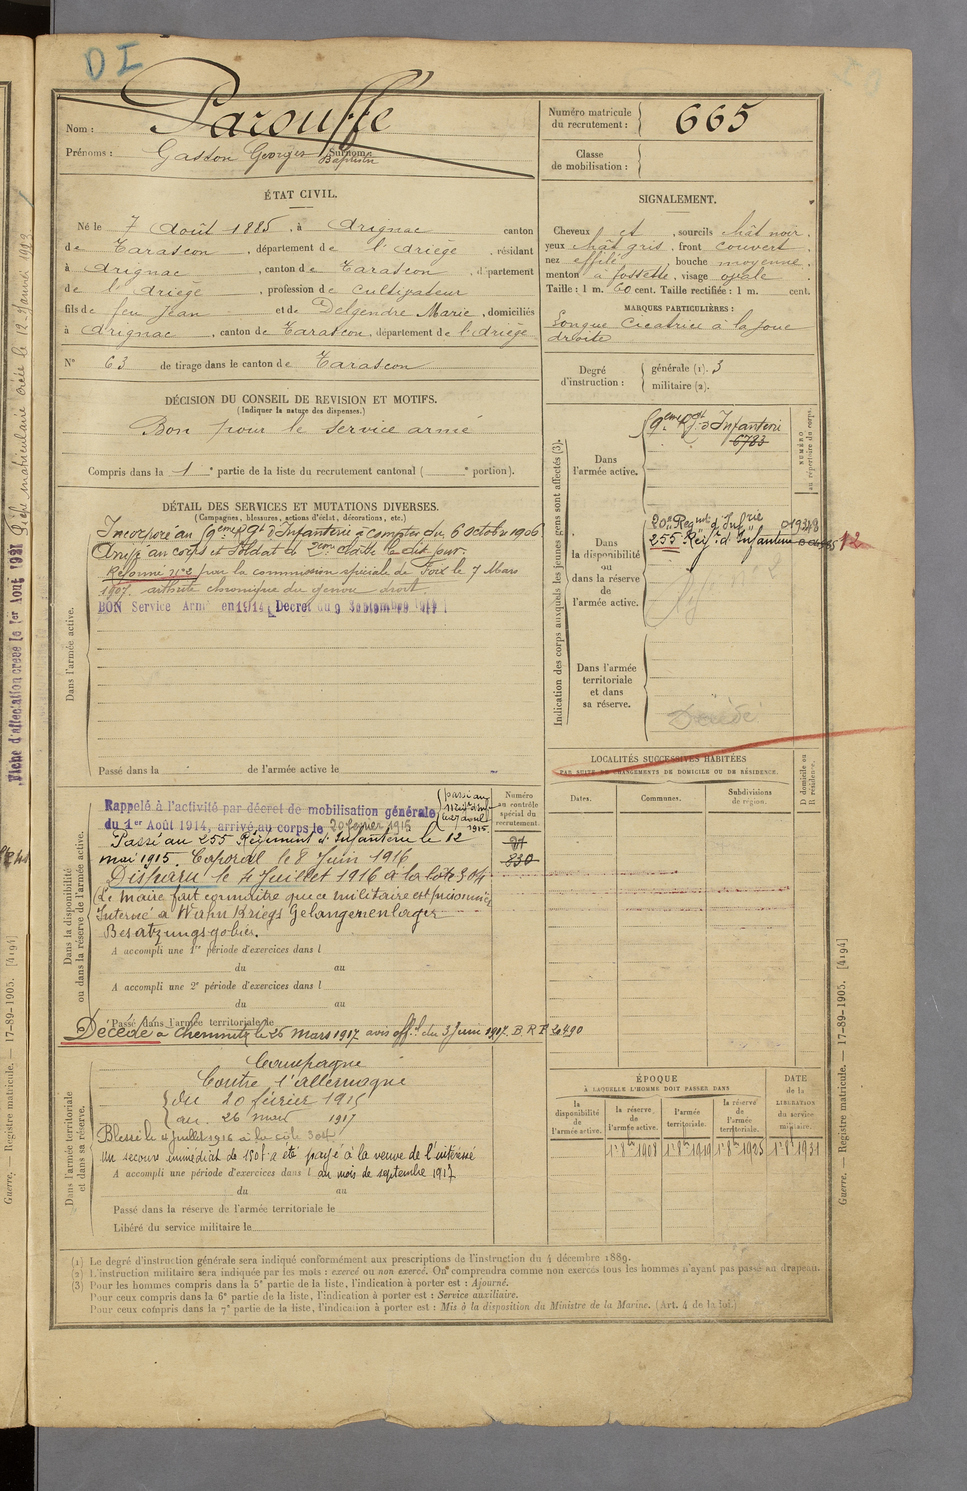 DI
Nom : Parouffe
Prénoms : Gaston Georges Baptistin
Surnoms
Numéro matricule
du recrutement : 665
Classe
de mobilisation :
ÉTAT CIVIL.
Né le 7 Août 1885, à Arignac canton
de Tarascon, département de l'Ariège, résidant
à Arignac, canton de Tarascon, département
de l'Ariège, profession de Cultivateur
fils de feu Jean et de Delgendre Marie, domiciliés
à Arignac, canton de Tarascon, département de l'Ariège
N° 63 de tirage dans le canton de Tarascon
SIGNALEMENT.
Cheveux et, sourcils chât noir.
yeux chât gris, front couvert.
nez effilé, bouche moyenne.
menton à fossette, visage ovale
Taille : 1 m. 60 cent. Taille rectifiée : 1 m. cent.
MARQUES PARTICULIÈRES :
Longue cicatrice à la joue
droite
Degré
d'instruction :
générale (1). 3
militaire (2).
DÉCISION DU CONSEIL DE REVISION ET MOTIFS.
(Indiquer la nature des dispenses.)
Bon pour le service armé
Compris dans la 1e partie de la liste du recrutement cantonal ( e portion).
DÉTAIL DES SERVICES ET MUTATIONS DIVERSES.
(Campagnes, blessures, actions d'éclat, décorations, etc.)
Incorporé au 9ème Rgt d'Infanterie à compter du 6 octobre 1906
Arrivé au corps et Soldat de 2ème classe le dit jour.
Réformé n°2 par la commission spéciale de Foix le 7 Mars
1907. arthrite chronique du genou droit.
BON Service Armé en 1914 Décret du 9 Septembre 1914
Dans l'armée active.
Passé dans la de l'armée active le
Indication des corps auxquels les jeunes gens sont affectés (3).
NUMÉRO
au répertoire du corps.
Dans
l'armée active.
9ème Rgt d'Infanterie
6783
Dans
la disponibilité
ou
dans la réserve
de
l'armée active.
20e Regiment d'Infrie 019248
255e Régt d'Infanterie
12
Dans l'armée
territoriale
et dans
sa réserve.
Décédé
LOCALITÉS SUCCESSIVES HABITÉES
PAR SUITE DE CHANGEMENTS DE DOMICILE OU DE RÉSIDENCE.
D domicile ou
R résidence.
Dates.
Communes.
Subdivisions
de région.
Numéro
au contrôle
spécial du
recrutement.
830
Dans la disponibilité
ou dans la réserve de l'armée active.
Rappelé à l'activité par décret de mobilisation générale
du 1er Août 1914, arrivé au corps le 20 février 1915
Passé au 255 Régiment d'Infanterie le 12
mai 1915. Caporal le 8 Juin 1916
Disparu le 4 Juillet 1916 à la côte 304
Le Maire fait connaître que ce militaire est prisonnier
Interné à Wahn Kriegs Gefangenenlager
A accompli une 1re période d'exercices dans l
du au
A accompli une 2e période d'exercices dans l
du au
Passé dans l'armée territoriale le
Décédé à Chemnitz le 26 mars 1917 avis offel du 3 Juin 1917. B.R.F 20490
Dans l'armée territoriale
et dans sa réserve.
Campagne
Contre l'Allemagne
du 20 février 1915
au 26 mars 1917
Blessé le 4 juillet 1916 à la côte 304
Un secours immédiat de 150f a été payé à la veuve de l'intéressé
A accompli une période d'exercices dans l au mois de septembre 1917
du au
Passé dans la réserve de l'armée territoriale le
Libéré du service militaire le
ÉPOQUE
À LAQUELLE L'HOMME DOIT PASSER DANS
DATE
de la
LIBÉRATION
du service
militaire.
la
disponibilité
de
l'armée active.
la réserve
de
l'armée active.
l'armée
territoriale.
la réserve
de
l'armée
territoriale.
1er 8bre 1908
1er 8bre 1919
1er 8bre 1925
1er 8bre 1931
(1) Le degré d'instruction générale sera indiqué conformément aux prescriptions de l'instruction du 4 décembre 1889.
(2) L'instruction militaire sera indiquée par les mots : exercé ou non exercé. On comprendra comme non exercés tous les hommes n'ayant pas passé au drapeau.
(3) Pour les hommes compris dans la 5e partie de la liste, l'indication à porter est : Ajourné.
Pour ceux compris dans la 6e partie de la liste, l'indication à porter est : Service auxiliaire.
Pour ceux compris dans la 7e partie de la liste, l'indication à porter est : Mis à la disposition du Ministre de la Marine. (Art. 4 de la loi.)
Guerre. — Registre matricule. — 17-89-1905. [4194]
Guerre. — Registre matricule. — 17-89-1905. [4194]
Fiche d'affectation créée le 1er Août 1921